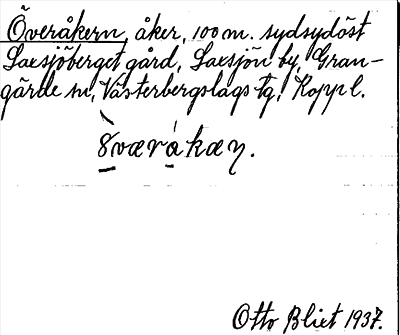 Överåkern, åker, 100 m. sydsydöst
Saxsjöberget gård, Saxsjön by, Gran-
gärde sn, Västerbergslags tg, Koppl.
öværåkæṇ.
Otto Blixt 1937.